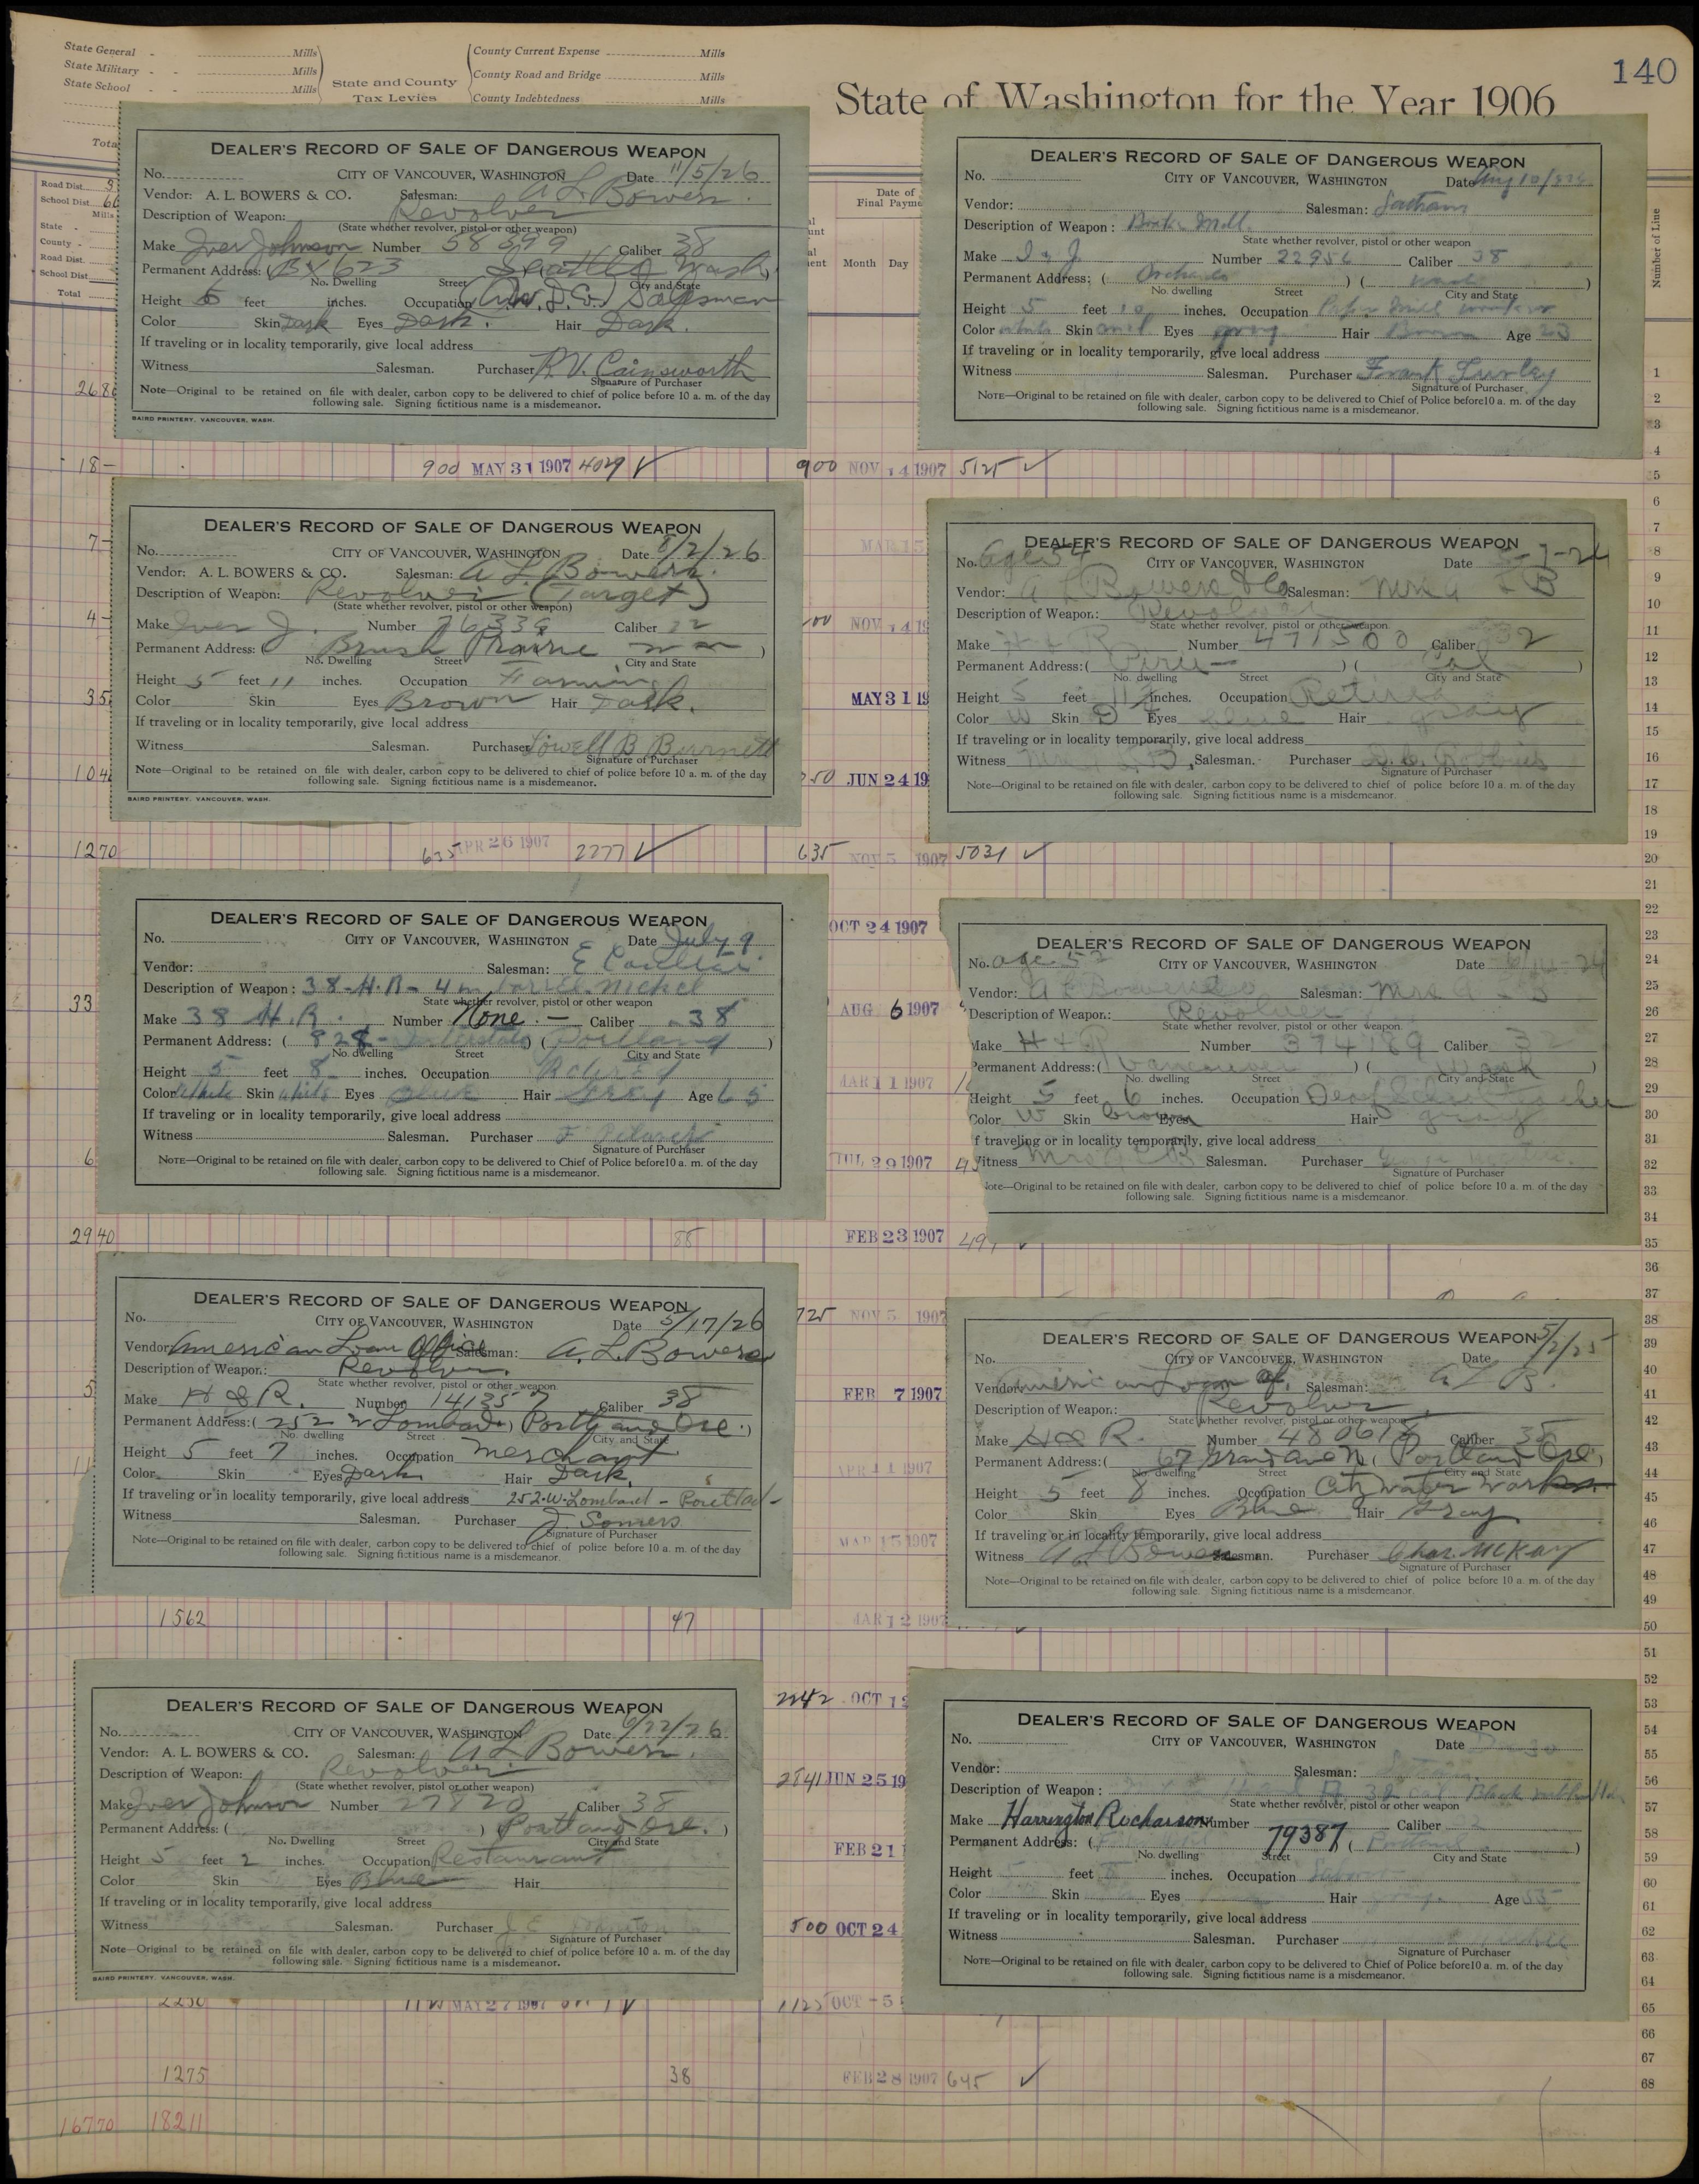 State General - Mills
State Military - - Mills
State School - - Mills
State and County
Tax Levies
County Current Expense Mills
County Road and Bridge Mills
County Indebtedness Mills
140
State of Washington for the Year 1906
Road Dist.
School Dist.
Mills
State -
County -
Road Dist.
School Dist
Total
Date of
Final Payme
Month Day
Number of Line
DEALER'S RECORD OF SALE OF DANGEROUS WEAPON
No. CITY OF VANCOUVER, WASHINGTON Date 11/5/26
Vendor: A. L. BOWERS & CO. Salesman: A L Bowers.
Description of Weapon: Revolver
(State whether revolver, pistol or other weapon)
Make Iver Johnson Number 58599 Caliber 38
Permanent Address: (Bx 623 Seattle Wash.
No. Dwelling Street City and State
Height 5 feet inches. Occupation Salesman
Color Skin Dark Eyes Dark. Hair Dark.
If traveling or in locality temporarily, give local address
Witness Salesman. Purchaser R.V. Cainsworth
Signature of Purchaser
Note—Original to be retained on file with dealer, carbon copy to be delivered to chief of police before 10 a. m. of the day
following sale. Signing fictitious name is a misdemeanor.
BAIRD PRINTERY, VANCOUVER, WASH.
DEALER'S RECORD OF SALE OF DANGEROUS WEAPON
No. CITY OF VANCOUVER, WASHINGTON Date Aug 10/
Vendor: Salesman:
Description of Weapon:
State whether revolver, pistol or other weapon
Make I & J Number 22956 Caliber 38
Permanent Address: ( Orchards ) ( Wash )
No. dwelling Street City and State
Height 5 feet 10 inches. Occupation Paper Mill worker
Color white Skin Eyes gray Hair Brown Age 23
If traveling or in locality temporarily, give local address
Witness Salesman. Purchaser Frank Turley
Signature of Purchaser
NOTE—Original to be retained on file with dealer, carbon copy to be delivered to Chief of Police before10 a. m. of the day
following sale. Signing fictitious name is a misdemeanor.
18- 900 MAY 31 1907 4029 ✓ 900 NOV 14 1907 5125 ✓
DEALER'S RECORD OF SALE OF DANGEROUS WEAPON
No. CITY OF VANCOUVER, WASHINGTON Date 8/2/26
Vendor: A. L. BOWERS & CO. Salesman: A L Bowers.
Description of Weapon: Revolver (Target)
(State whether revolver, pistol or other weapon)
Make Iver J. Number 76339 Caliber 22
Permanent Address: ( Brush Prairie )
No. Dwelling Street City and State
Height 5 feet 11 inches. Occupation Farming
Color Skin Eyes Brown Hair Dark.
If traveling or in locality temporarily, give local address
Witness Salesman. Purchaser Lowell B Burnett
Signature of Purchaser
Note—Original to be retained on file with dealer, carbon copy to be delivered to chief of police before 10 a. m. of the day
following sale. Signing fictitious name is a misdemeanor.
BAIRD PRINTERY, VANCOUVER, WASH.
MAR 15
NOV 14 19
MAY 31 19
JUN 24 19
DEALER'S RECORD OF SALE OF DANGEROUS WEAPON
No. age 54 CITY OF VANCOUVER, WASHINGTON Date
Vendor: A L Bowers & Co Salesman: Mrs A L B
Description of Weapon.: Revolver
State whether revolver, pistol or other weapon.
Make H & R Number 471500 Caliber 32
Permanent Address: ( ) ( Cal )
No. dwelling Street City and State
Height 5 feet 11½ inches. Occupation Retired
Color W Skin D Eyes blue Hair gray
If traveling or in locality temporarily, give local address
Witness Mrs A L B Salesman. Purchaser D. C. Robbins
Signature of Purchaser
Note—Original to be retained on file with dealer, carbon copy to be delivered to chief of police before 10 a. m. of the day
following sale. Signing fictitious name is a misdemeanor.
1270 635 APR 26 1907 2777 ✓ 635 NOV 5 1907 5031 ✓
DEALER'S RECORD OF SALE OF DANGEROUS WEAPON
No. CITY OF VANCOUVER, WASHINGTON Date July 9.
Vendor: Salesman: E
Description of Weapon: 38-H.R- 4 in barrel Nickel
State whether revolver, pistol or other weapon
Make 38 H.R. Number None.- Caliber 38
Permanent Address: ( 828- Interstate ) ( Portland )
No. dwelling Street City and State
Height 5 feet 8 inches. Occupation Retired
Color White Skin white Eyes Blue Hair Grey Age 65
If traveling or in locality temporarily, give local address
Witness Salesman. Purchaser F
Signature of Purchaser
NOTE—Original to be retained on file with dealer, carbon copy to be delivered to Chief of Police before10 a. m. of the day
following sale. Signing fictitious name is a misdemeanor.
OCT 24 1907
AUG 6 1907
MAR 11 1907
JUL 29 1907
DEALER'S RECORD OF SALE OF DANGEROUS WEAPON
No. age 52 CITY OF VANCOUVER, WASHINGTON Date
Vendor: A L Bowers & Co Salesman: Mrs A L B
Description of Weapon.: Revolver
State whether revolver, pistol or other weapon.
Make H & R Number 374189 Caliber 32
Permanent Address: ( Vancouver ) ( Wash )
No. dwelling Street City and State
Height 5 feet 6 inches. Occupation Deaf School teacher
Color W Skin brown Eyes Hair gray
f traveling or in locality temporarily, give local address
Witness Mrs A L B Salesman. Purchaser
Signature of Purchaser
Note—Original to be retained on file with dealer, carbon copy to be delivered to chief of police before 10 a. m. of the day
following sale. Signing fictitious name is a misdemeanor.
2940 88 FEB 23 1907
DEALER'S RECORD OF SALE OF DANGEROUS WEAPON
No. CITY OF VANCOUVER, WASHINGTON Date 5/17/26
Vendor American Loan Office Salesman: A. L Bowers
Description of Weapon.: Revolver.
State whether revolver, pistol or other weapon.
Make H & R. Number 141357 Caliber 38
Permanent Address: ( 252 W Lombard ) Portland Ore. )
No. dwelling Street City and State
Height 5 feet 7 inches. Occupation Merchant
Color Skin Eyes Dark Hair Dark.
If traveling or in locality temporarily, give local address 252-W-Lombard - Portlad-
Witness Salesman. Purchaser J. Somers
Signature of Purchaser
Note—Original to be retained on file with dealer, carbon copy to be delivered to chief of police before 10 a. m. of the day
following sale. Signing fictitious name is a misdemeanor.
725 NOV 5 1907
FEB 7 1907
APR 11 1907
MAR 15 1907
DEALER'S RECORD OF SALE OF DANGEROUS WEAPON
No. CITY OF VANCOUVER, WASHINGTON Date 5/2/25
Vendor American Loan Of. Salesman: A L B.
Description of Weapon.: Revolver.
State whether revolver, pistol or other weapon.
Make H & R. Number Caliber 38
Permanent Address: ( 67 Grand ave N ( Portland Ore )
No. dwelling Street City and State
Height 5 feet 8 inches. Occupation City water works
Color Skin Eyes Blue Hair Gray
If traveling or in locality temporarily, give local address
Witness A L Bowers Salesman. Purchaser Chas. McKay
Signature of Purchaser
Note—Original to be retained on file with dealer, carbon copy to be delivered to chief of police before 10 a. m. of the day
following sale. Signing fictitious name is a misdemeanor.
1562 47 MAR 12 1907
DEALER'S RECORD OF SALE OF DANGEROUS WEAPON
No. CITY OF VANCOUVER, WASHINGTON Date 6/22/26
Vendor: A. L. BOWERS & CO. Salesman: A L Bowers.
Description of Weapon: Revolver.
(State whether revolver, pistol or other weapon)
Make Iver Johnson Number 27820 Caliber 38
Permanent Address: ( ) Portland Ore. )
No. Dwelling Street City and State
Height 5 feet 2 inches. Occupation Restaurant
Color Skin Eyes Blue Hair
If traveling or in locality temporarily, give local address
Witness Salesman. Purchaser J E
Signature of Purchaser
Note—Original to be retained on file with dealer, carbon copy to be delivered to chief of police before 10 a. m. of the day
following sale. Signing fictitious name is a misdemeanor.
BAIRD PRINTERY, VANCOUVER, WASH.
OCT 12
2841 JUN 25 19
FEB 21
500 OCT 24
DEALER'S RECORD OF SALE OF DANGEROUS WEAPON
No. CITY OF VANCOUVER, WASHINGTON Date
Vendor: Salesman:
Description of Weapon: 32 Black
State whether revolver, pistol or other weapon
Make Harrington Richarson Number 79387 Caliber
Permanent Address: ( ( Portland )
No. dwelling Street City and State
Height 5 feet inches. Occupation Laborer
Color Skin Eyes Hair Age 55
If traveling or in locality temporarily, give local address
Witness Salesman. Purchaser
Signature of Purchaser
NOTE—Original to be retained on file with dealer, carbon copy to be delivered to Chief of Police before10 a. m. of the day
following sale. Signing fictitious name is a misdemeanor.
2250 MAY 27 1907 1125 OCT -5
1275 38 FEB 28 1907 645 ✓
16770 18211
1
2
3
4
5
6
7
8
9
10
11
12
13
14
15
16
17
18
19
20
21
22
23
24
25
26
27
28
29
30
31
32
33
34
35
36
37
38
39
40
41
42
43
44
45
46
47
48
49
50
51
52
53
54
55
56
57
58
59
60
61
62
63
64
65
66
67
68